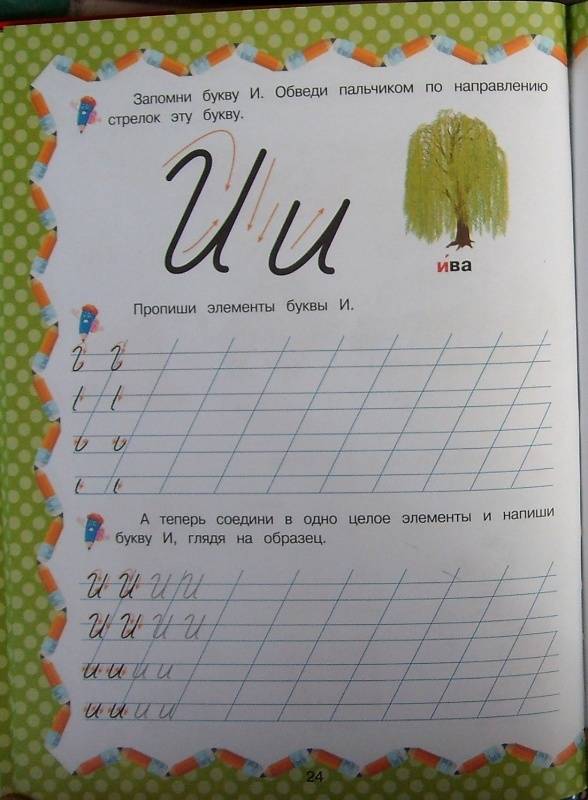 Запомни букву И. Обведи пальчиком по направлению
стрелок эту букву.
И и
и́ва
Пропиши элементы буквы И.
А теперь соедини в одно целое элементы и напиши
букву И, глядя на образец.
И И И И
И И И И
и и и и
и и и и
24